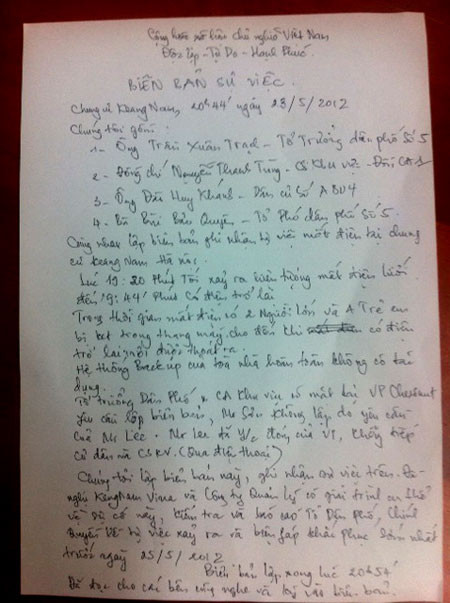 Cộng hòa xã hội chủ nghĩa Việt Nam
Độc lập - Tự Do - Hạnh Phúc
BIÊN BẢN SỰ VIỆC
Chung cư Keang Nam, 20h44' ngày 23/5/2012
Chúng tôi gồm:
1- Ông Trần Xuân - Tổ Trưởng dân phố Số 5
2- Đồng chí Nguyễn Thanh Tùng - CS Khu vực - CA
3- Ông Huy Khánh - Dân cư số A
4- Bà Bùi - Tổ Phó dân phố Số 5
Cùng nhau lập biên bản ghi nhận sự việc mất điện tại chung
cư Keang Nam Hà Nội:
Lúc 19:20 phút Tối xảy ra hiện tượng mất điện lưới
đến 19:44 phút Có điện trở lại
Trong thời gian mất điện có 2 Người lớn và 1 Trẻ em
bị kẹt trong thang máy, cho đến khi có điện
trở lại mới được thoát ra.
Hệ thống Backup của tòa nhà hoàn toàn không có tác
dụng.
Tổ trưởng Dân Phố & CA Khu vực có mặt tại VP Chesnut
yêu cầu lập biên bản, Mr Sơn không lập do yêu cầu
của Mr Lee. Mr Lee đã y/c đóng cửa VP, không tiếp
cả dân và CSKV. (Qua điện thoại)
Chúng tôi lập biên bản này, ghi nhận sự việc trên. Đề
nghị Keangnam Vina và Công ty Quản lý có giải trình cụ thể
về sự cố này, kiểm tra và báo cáo Tổ Dân phố, Chính
Quyền về sự việc xảy ra và biện pháp khắc phục sớm nhất
trước ngày 25/5/2012
Biên bản lập xong lúc 20h54'
Đã đọc cho các bên cùng nghe và ký vào biên bản.